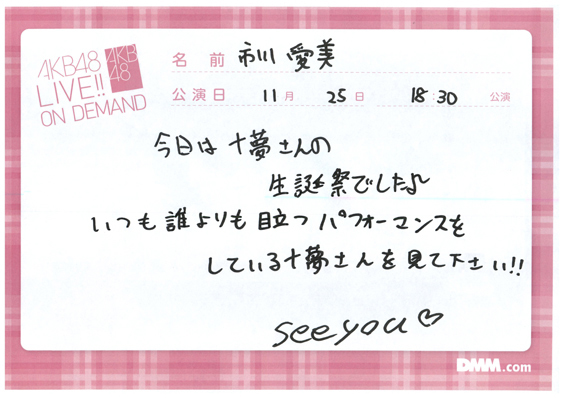 AKB48
LIVE!!
ON DEMAND
AKB
48
名 前 市川 愛美
公演日 11月 25日 18:30 公演
今日は 十夢さんの
生誕祭でした♪
いつも 誰よりも 目立つ パフォーマンスを
している十夢さんを 見て下さい!!
see you♡
DMM.com